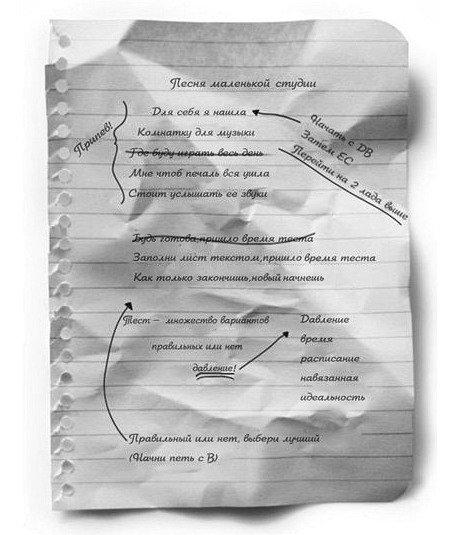 Песня маленькой студии
Припев!
Для себя я нашла
Комнатку для музыки
Где буду играть весь день
Мне чтоб печаль вся ушла
Стоит услышать ее звуки
Начать с DB
Затем EC
Перейти на 2 лада выше
Будь готова,пришло время теста
Заполни лист текстом,пришло время теста
Как только закончишь,новый начнешь
Тест – множество вариантов
правильных или нет
давление!
Давление
время
расписание
навязанная
идеальность
Правильный или нет, выбери лучший
(Начни петь с B)